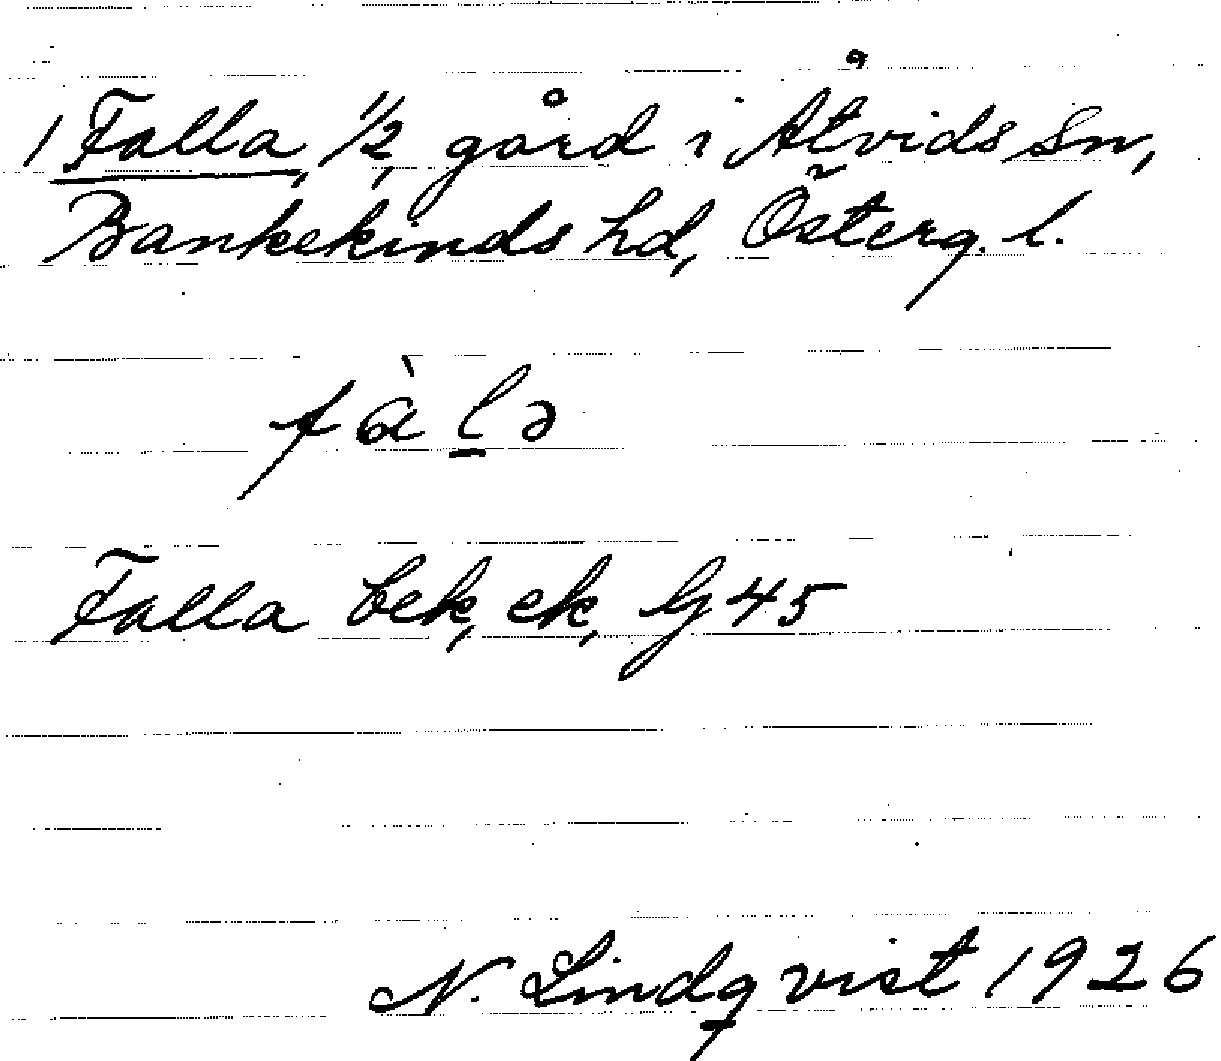 1 Falla, 1/2, gård i Åtvids sn,
Bankekinds hd, Österg. l.
fàlə
Falla bek, ek, Gj 45
N. Lindqvist 1926